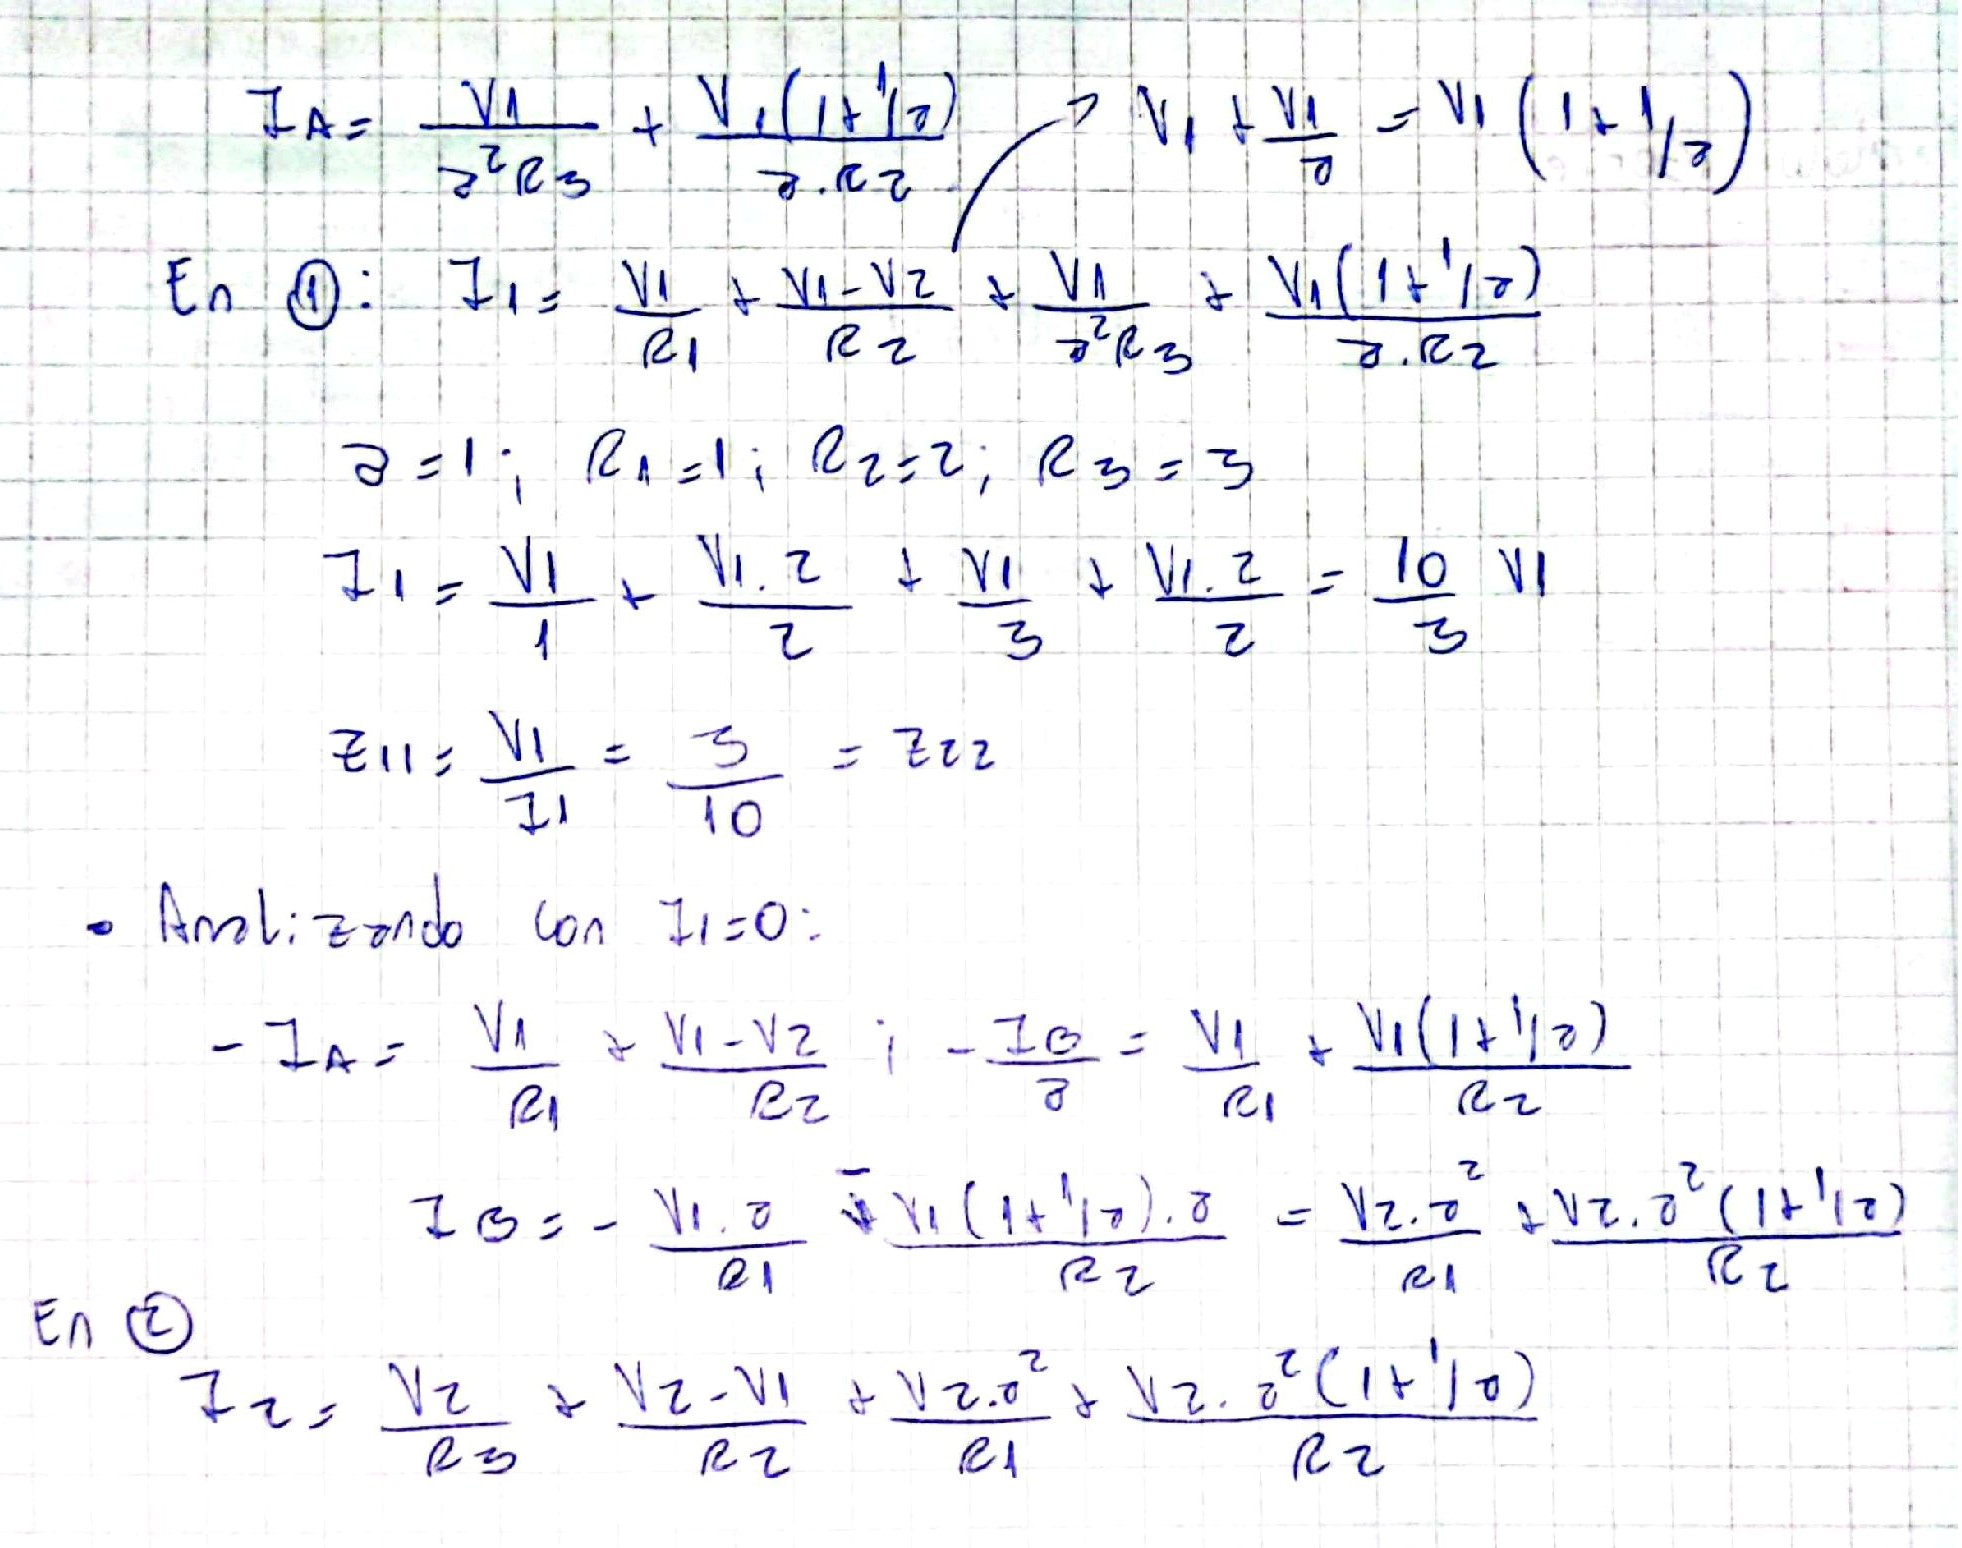 IA = V1/(a²R3) + V1(1+1/a)/(a.R2)    V1 + V1/a = V1(1+1/a)
En ①: I1 = V1/R1 + (V1-V2)/R2 + V1/(a²R3) + V1(1+1/a)/(a.R2)
a=1; R1=1; R2=2; R3=3
I1 = V1/1 + V1.2/2 + V1/3 + V1.2/2 = 10/3 V1
Z11 = V1/I1 = 3/10 = Z22
• Analizando con I1=0:
-IA = V1/R1 + (V1-V2)/R2 ; -IB/a = V1/R1 + V1(1+1/a)/R2
IB = - V1.a/R1 - V1(1+1/a).a/R2 = V2.a²/R1 + V2.a²(1+1/a)/R2
En ②
I2 = V2/R3 + (V2-V1)/R2 + V2.a²/R1 + V2.a²(1+1/a)/R2